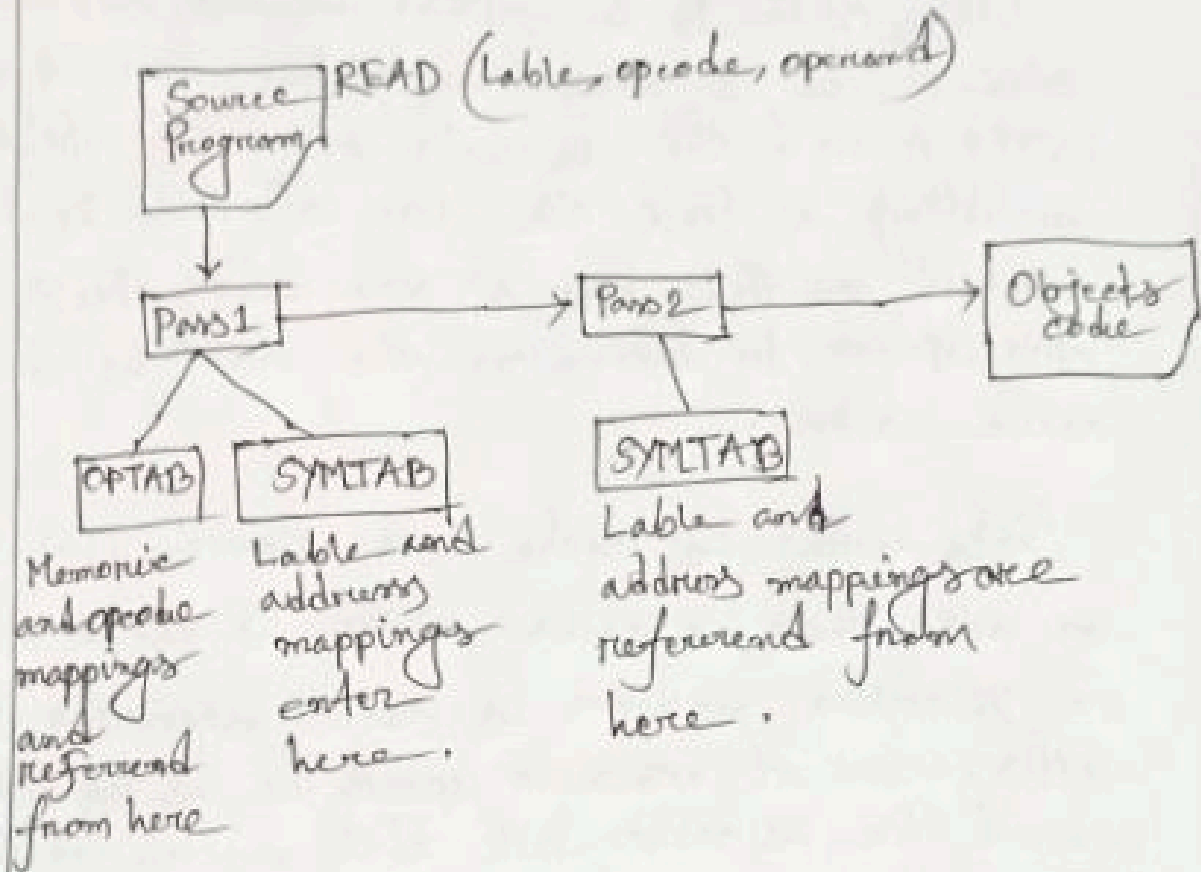 READ (Lable, opcode, operand)
Source
Program
Pass1
Pass2
Objects
code
OPTAB
SYMTAB
SYMTAB
Memonic
and opcode
mappings
and
referrend
from here
Lable and
address
mappings
enter
here.
Lable and
address mappings are
refererend from
here.